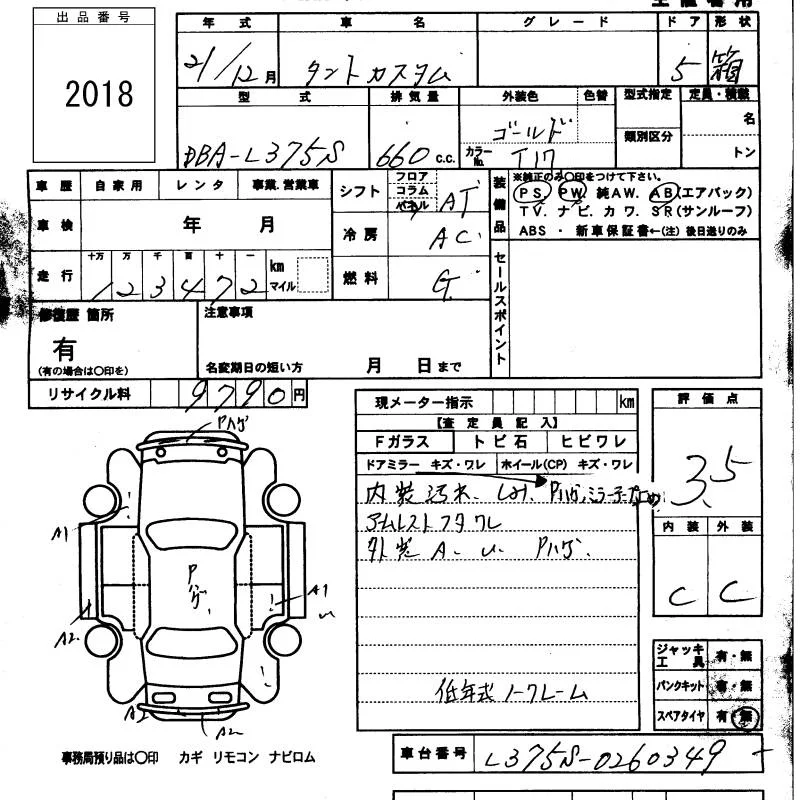 出品番号
2018
年式 車名 グレード ドア 形状
21/12月 タントカスタム 5 箱
型式 排気量 外装色 色替 型式指定 定員・積載
DBA-L375S 660 c.c. ゴールド 類別区分 名
カラーNo. T17 トン
車歴 自家用 レンタ 事業.営業車
車検 年 月
走行 十万 万 千 百 十 一
1 2 3 4 7 2 km マイル
シフト フロア コラム パネル AT
冷房 AC
燃料 G
装備品 ※純正のみ〇印をつけて下さい。
PS. PW. 純AW. AB(エアバック)
TV. ナビ. カワ. SR(サンルーフ)
ABS ・ 新車保証書←(注) 後日送りのみ
セールスポイント
修復歴 箇所
有
(有の場合は〇印を)
注意事項
名変期日の短い方 月 日まで
リサイクル料 9790円
現メーター指示 km
【査定員記入】
Fガラス トビ石 ヒビワレ
ドアミラー キズ・ワレ ホイール(CP) キズ・ワレ
内装汚れ、 Pハゲ,ミラー
アームレストフタワレ
外装 A. U. Pハゲ.
低年式ノークレーム
評価点
3.5
内装 外装
C C
ジャッキ工具 有・無
パンクキット 有・無
スペアタイヤ 有・無
Pハゲ
A1
Pハゲ
A1
A2
A2
A2
事務局預り品は〇印 カギ リモコン ナビロム
車台番号 L375S-0260349